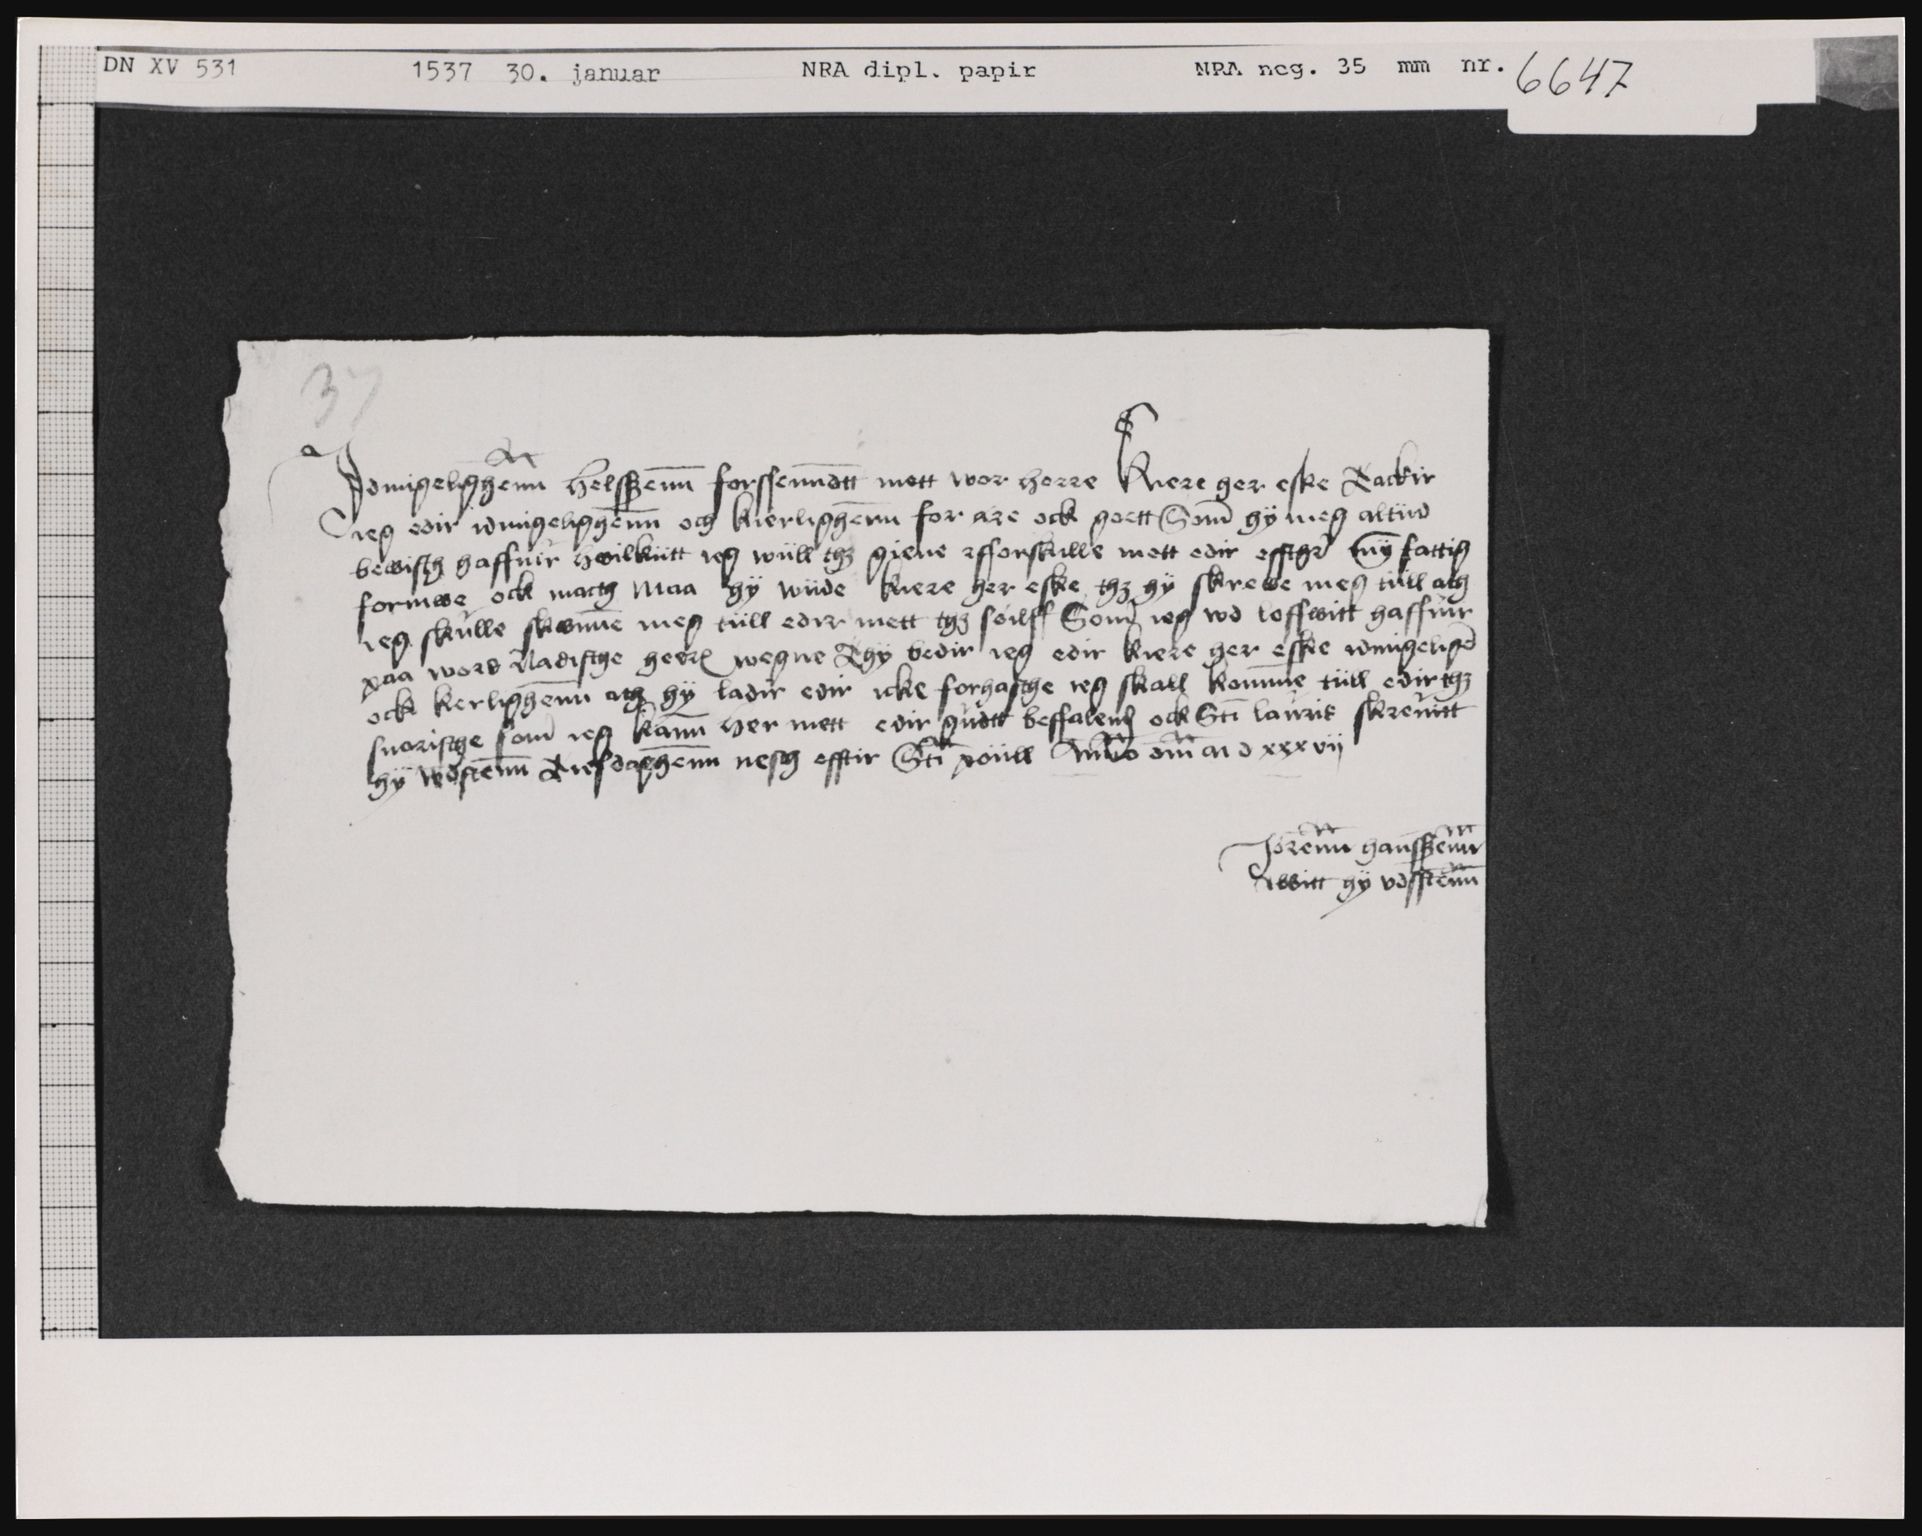 DN XV 531 1537 30. januar NRA dipl. papir NRA neg. 35 mm nr. 6647
37
Jdmigelighenn helsszenn forssenndtt mett wor herre kiere her eske tackir
ieg edir idmigelighenn och kierlighenn for are ock goett Som hÿ meg altiid
bewisth haffuir hwilkiitt ieg wiill thz giene fforskulle mett edir effther mÿ fattig
formwe ock macth Maa hÿ wiide kiere her eske thz hÿ skrewe meg tiill ath
ieg skulle skiwnne meg tiill edir mett thz soilff Som ieg wd loffwitt haffuir
paa wors Nadisthe herre wegne Thÿ bedir ieg edir kiere her eske idmigeliged
ock kerlighenn ath hÿ ladir edir icke forhasthe ieg skall komme tiill edir thz
snaristhe som ieg kann her mett edir gudtt beffalend ock Sti lauris skreuitt
hÿ wdstenn tiesdaghenn nesth efftir Sti poiill Anno dm md xxxvij
Jörenn hansszenn
awitt hÿ vdsstenn